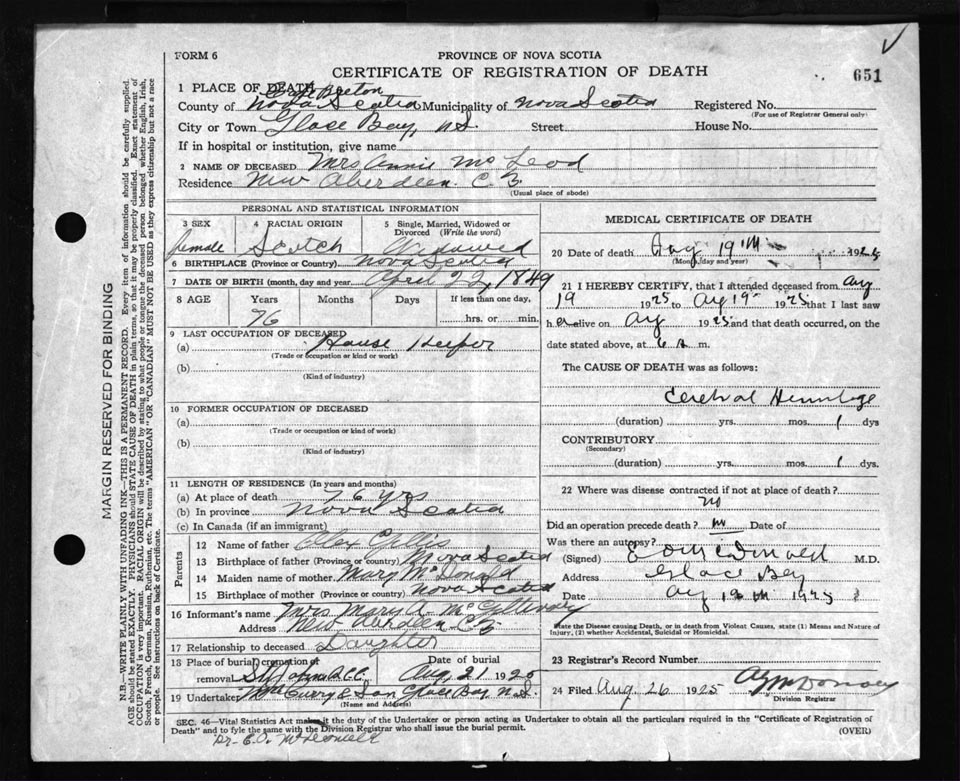 FORM 6
PROVINCE OF NOVA SCOTIA
CERTIFICATE OF REGISTRATION OF DEATH
651
1 PLACE OF DEATH Breton
County of Nova Scotia Municipality of Nova Scotia Registered No.
(For use of Registrar General only)
City or Town Glace Bay, N.S. Street House No.
If in hospital or institution, give name
2 NAME OF DECEASED Mrs Annie McLeod
Residence New Aberdeen. C.B.
(Usual place of abode)
PERSONAL AND STATISTICAL INFORMATION
3 SEX 4 RACIAL ORIGIN 5 Single, Married, Widowed or Divorced (Write the word)
female Scotch Widowed
6 BIRTHPLACE (Province or Country) Nova Scotia
7 DATE OF BIRTH (month, day and year) April 22, 1849
8 AGE Years Months Days If less than one day,
76 hrs. or min.
9 LAST OCCUPATION OF DECEASED
(a) House Keeper
(Trade or occupation or kind or work)
(b)
(Kind of industry)
10 FORMER OCCUPATION OF DECEASED
(a)
(Trade or occupation or kind of work)
(b)
(Kind of industry)
11 LENGTH OF RESIDENCE (In years and months)
(a) At place of death 76 yrs
(b) In province Nova Scotia
(c) In Canada (if an immigrant)
Parents
12 Name of father Alex Gillis
13 Birthplace of father (Province or country) Nova Scotia
14 Maiden name of mother Mary McDonald
15 Birthplace of mother (Province or country) Nova Scotia
16 Informant's name Mrs Mary A McGillivary
Address New Aberdeen C.B.
17 Relationship to deceased Daughter
18 Place of burial, cremation or removal Date of burial
Aug 21 1925
19 Undertaker & Son Glace Bay N.S.
(Name and Address)
MEDICAL CERTIFICATE OF DEATH
20 Date of death Aug 19th 192
(Month, day and year)
21 I HEREBY CERTIFY, that I attended deceased from Aug
19 1925 to Aug 19 1925 that I last saw
her alive on Aug 1925 and that death occurred, on the
date stated above, at 6 A m.
The CAUSE OF DEATH was as follows:
Cerebral
(duration) yrs. mos. 1 dys
CONTRIBUTORY
(Secondary)
(duration) yrs. mos. 1 dys.
22 Where was disease contracted if not at place of death?
no
Did an operation precede death? no Date of
Was there an autopsy?
(Signed) McDonald M.D.
Address Glace Bay
Date Aug 1925
State the Disease causing Death, or in death from Violent Causes, state (1) Means and Nature of
Injury, (2) whether Accidental, Suicidal or Homicidal.
23 Registrar's Record Number
24 Filed Aug. 26 1925
Division Registrar
SEC. 46—Vital Statistics Act makes it the duty of the Undertaker or person acting as Undertaker to obtain all the particulars required in the "Certificate of Registration of
Death" and to fyle the same with the Division Registrar who shall issue the burial permit.
(OVER)
Dr.
MARGIN RESERVED FOR BINDING
N.B.—WRITE PLAINLY WITH UNFADING INK—THIS IS A PERMANENT RECORD. Every item of information should be carefully supplied.
AGE should be stated EXACTLY. PHYSICIANS should STATE CAUSE OF DEATH in plain terms, so that it may be properly classified. Exact statement of
OCCUPATION is very important. RACIAL ORIGIN will be described by stating to what people or tongue the deceased person belonged whether English, Irish,
Scotch, French, German, Russian, Ruthenian, etc. The terms "AMERICAN" OR "CANADIAN" MUST NOT BE USED as they express citizenship but not a race
or people. See instructions on back of Certificate.